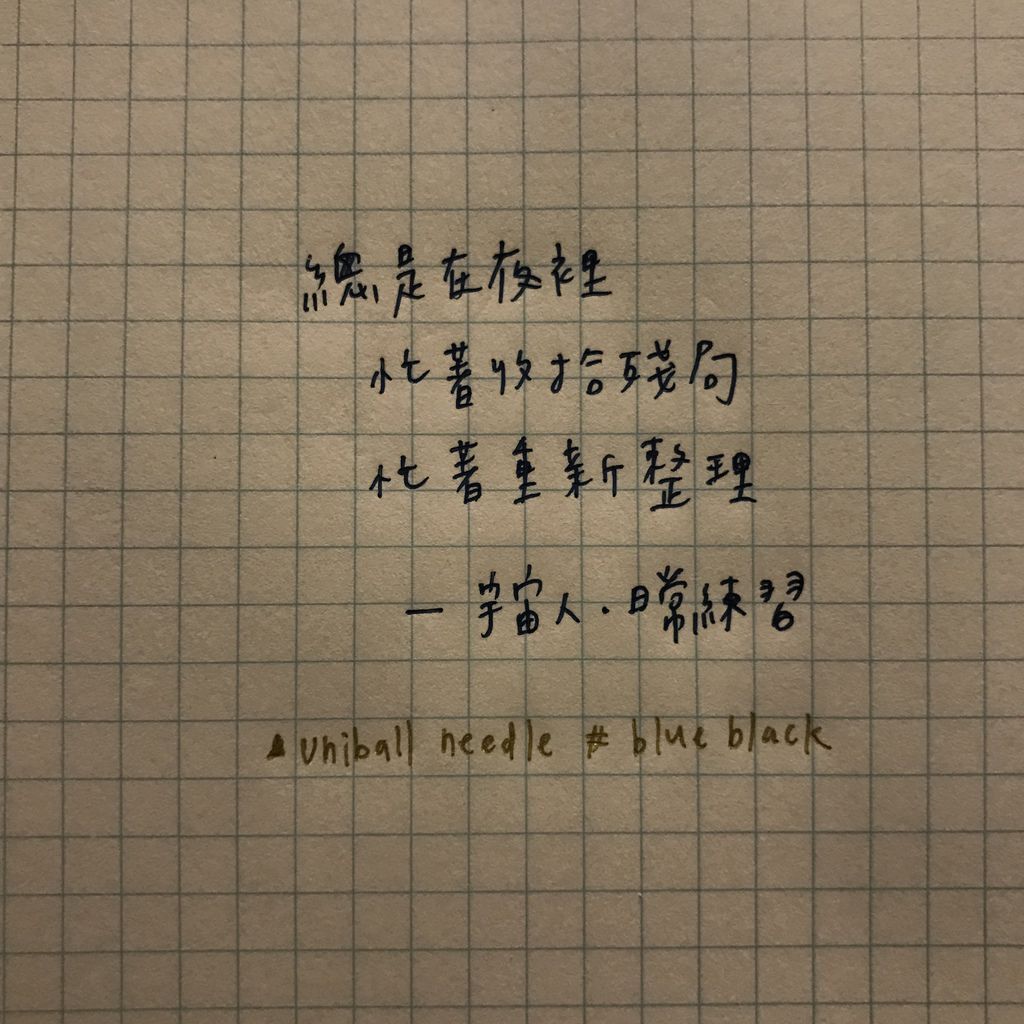 總是在夜裡
忙著收拾殘局
忙著重新整理
— 宇宙人．日常練習
▲ uniball needle # blue black